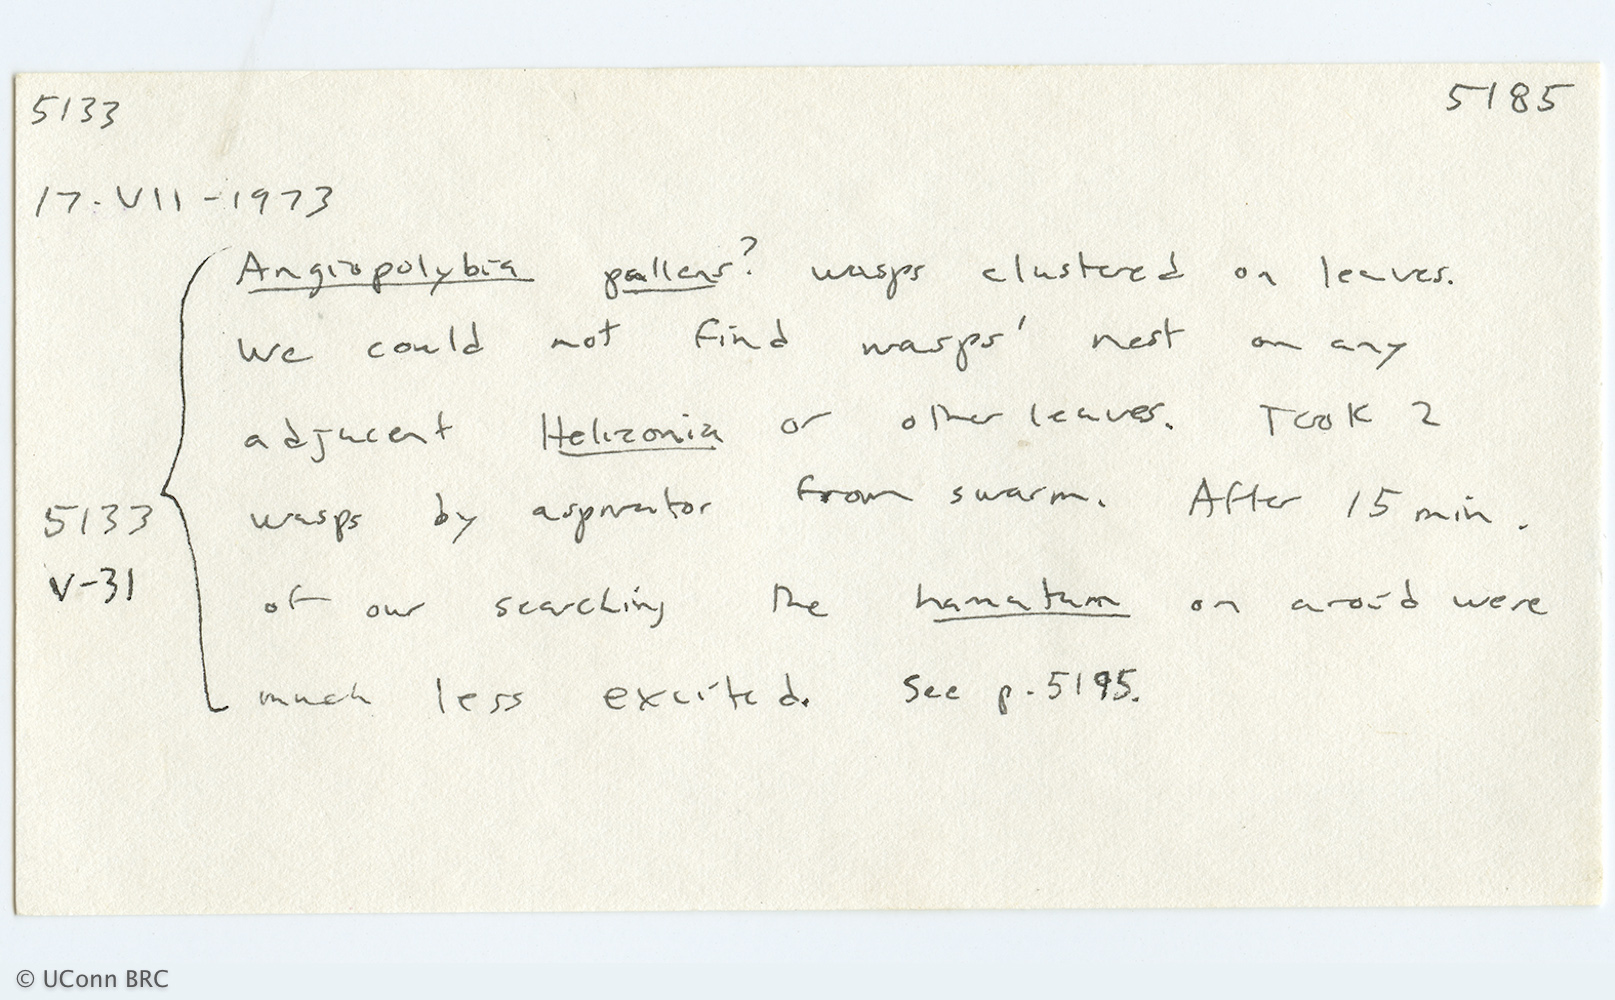 5133 5185
17-VII-1973
Angiopolybia pallens? wasps clustered on leaves.
We could not find wasps' nest on any
adjacent Heliconia or other leaves. Took 2
5133 wasps by aspirator from swarm. After 15 min.
V-31
of our searching the hamatum on aroid were
much less excited. See p. 5195.
© UConn BRC